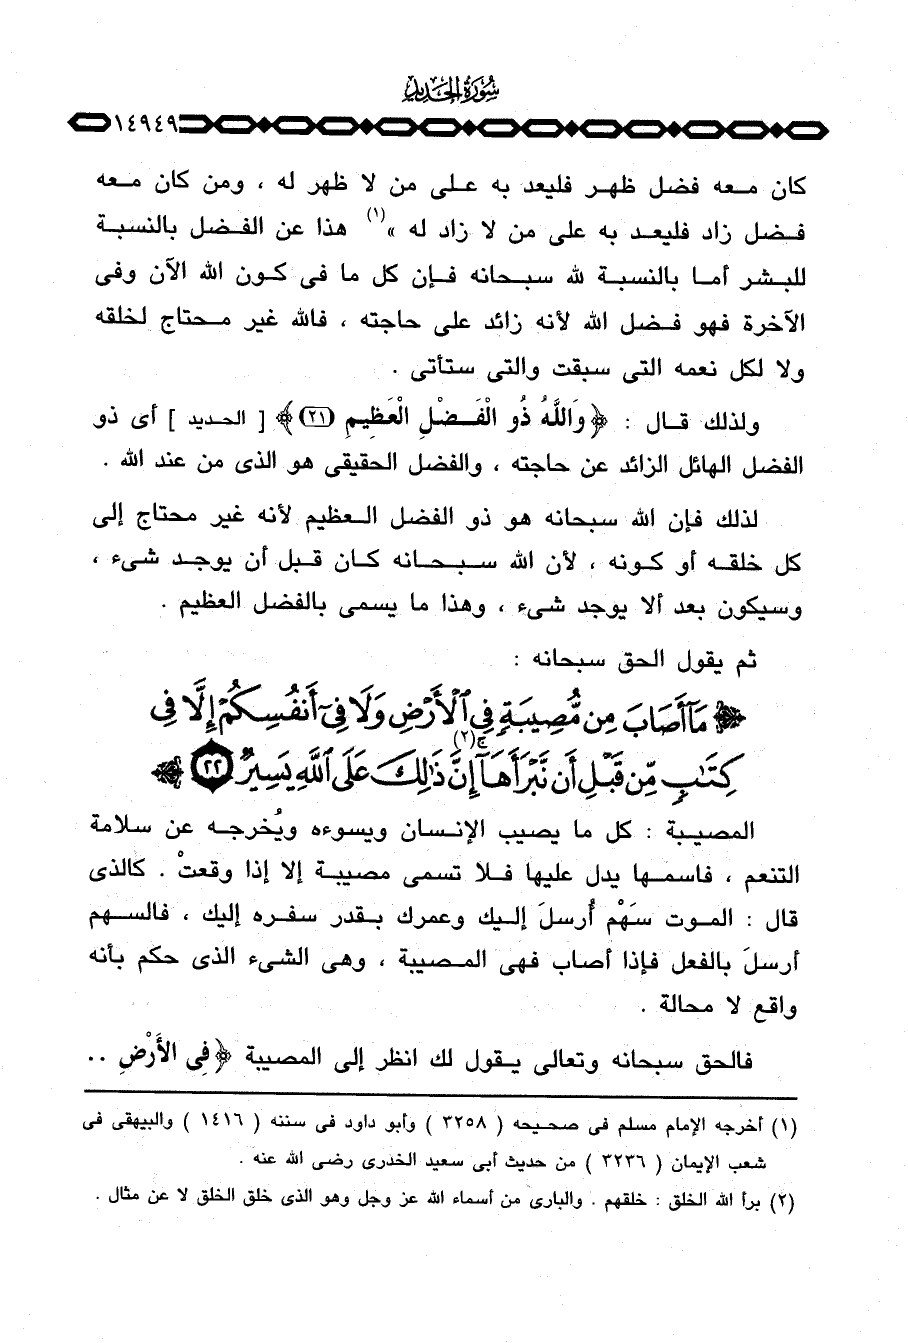 سورة الحديد
١٤٩٤٩
كان معه فضل ظهر فليعد به على من لا ظهر له ، ومن كان معه
فضل زاد فليعد به على من لا زاد له »(١) هذا عن الفضل بالنسبة
للبشر أما بالنسبة لله سبحانه فإن كل ما فى كون الله الآن وفى
الآخرة فهو فضل الله لأنه زائد على حاجته ، فالله غير محتاج لخلقه
ولا لكل نعمه التى سبقت والتى ستأتى .
ولذلك قال : ﴿ وَاللَّهُ ذُو الْفَضْلِ الْعَظِيمِ (٢١) ﴾ [ الحديد ] أى ذو
الفضل الهائل الزائد عن حاجته ، والفضل الحقيقى هو الذى من عند الله .
لذلك فإن الله سبحانه هو ذو الفضل العظيم لأنه غير محتاج إلى
كل خلقه أو كونه ، لأن الله سبحانه كان قبل أن يوجد شىء ،
وسيكون بعد ألا يوجد شىء ، وهذا ما يسمى بالفضل العظيم .
ثم يقول الحق سبحانه :
﴿ مَآ أَصَابَ مِن مُّصِيبَةٍ فِي ٱلْأَرْضِ وَلَا فِىٓ أَنفُسِكُمْ إِلَّا فِى
كِتَٰبٍ مِّن قَبْلِ أَن نَّبْرَأَهَآ ۚ(٢) إِنَّ ذَٰلِكَ عَلَى ٱللَّهِ يَسِيرٌ ٢٢ ﴾
المصيبة : كل ما يصيب الإنسان ويسوءه ويُخرجه عن سلامة
التنعم ، فاسمها يدل عليها فلا تسمى مصيبة إلا إذا وقعتْ . كالذى
قال : الموت سَهْم أُرسلَ إليك وعمرك بقدر سفره إليك ، فالسهم
أرسلَ بالفعل فإذا أصاب فهى المصيبة ، وهى الشىء الذى حكم بأنه
واقع لا محالة .
فالحق سبحانه وتعالى يقول لك انظر إلى المصيبة ﴿ فِى الأَرْضِ ..
(١) أخرجه الإمام مسلم فى صحيحه ( ٣٢٥٨ ) وأبو داود فى سننه ( ١٤١٦ ) والبيهقى فى
شعب الإيمان ( ٣٢٣٦ ) من حديث أبى سعيد الخدرى رضى الله عنه .
(٢) برأ الله الخلق : خلقهم . والبارى من أسماء الله عز وجل وهو الذى خلق الخلق لا عن مثال .